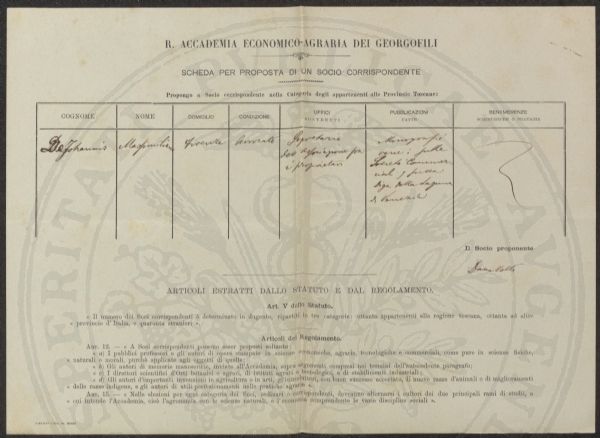 R. ACCADEMIA ECONOMICO-AGRARIA DEI GEORGOFILI
SCHEDA PER PROPOSTA DI UN SOCIO CORRISPONDENTE
Propongo a Socio corrispondente nella Categoria degli appartenenti alle Provincie Toscane:
COGNOME NOME DOMICILIO CONDIZIONE UFFICI SOSTENUTI PUBBLICAZIONI FATTE BENEMERENZE
De Johannis Firenze Avvocato Segretario
Il Socio proponente
ARTICOLI ESTRATTI DALLO STATUTO E DAL REGOLAMENTO.
Art. V dello Statuto.
« Il numero dei Soci corrispondenti è determinato in dugento, ripartiti in tre categorie: ottanta appartenenti alla regione toscana, ottanta ad altre
« provincie d'Italia, e quaranta stranieri ».
Articoli del Regolamento.
ART. 12. — « A Soci corrispondenti possono esser proposti soltanto:
« a) I pubblici professori e gli autori di opere stampate in scienze economiche, agrarie, tecnologiche e commerciali, come pure in scienze fisiche,
« naturali e morali, purchè applicate agli oggetti di quelle;
« b) Gli autori di memorie manoscritte, inviate all'Accademia, sopra argomenti compresi nei termini dell'antecedente paragrafo;
« c) I direttori scientifici d'Orti botanici e agrari, di Istituti agrari e tecnologici, e di stabilimenti industriali;
« d) Gli autori d'importanti invenzioni in agricoltura o in arti, gli introduttori, con buon successo accertato, di nuove razze d'animali e di miglioramenti
« delle razze indigene, e gli autori di utili perfezionamenti nelle pratiche agrarie ».
ART. 15. — « Nelle elezioni per ogni categoria dei Soci, ordinari o corrispondenti, dovranno alternarsi i cultori dei due principali rami di studii, a
« cui intende l'Accademia, cioè l'agronomia con le scienze naturali, e l'economia comprendente le varie discipline sociali ».